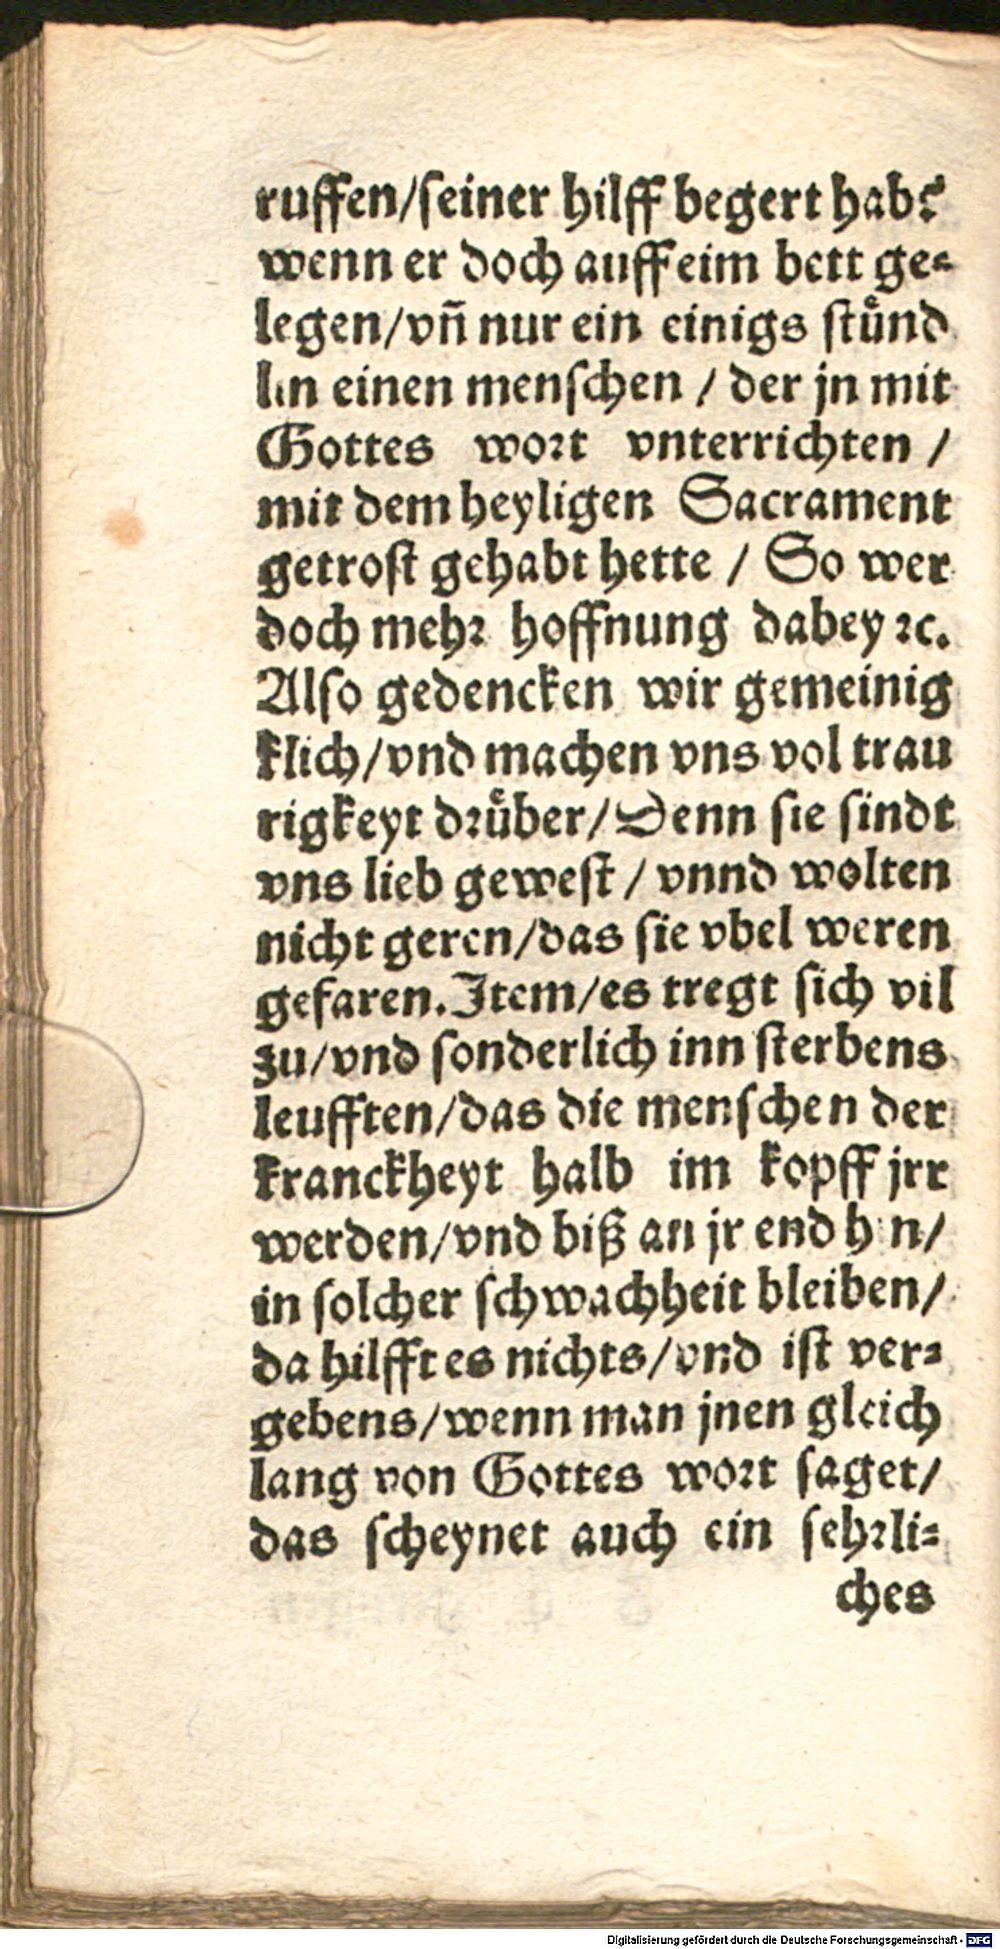 ruffen/ſeiner hilff begert hab?
wenn er doch auff eim bett ge⸗
legen/vñ nur ein einigs ſtuͤnd
lin einen menſchen / der jn mit
Gottes woꝛt vnterrichten /
mit dem heyligen Sacrament
getroſt gehabt hette / So wer
doch mehꝛ hoffnung dabey ꝛc.
Alſo gedencken wir gemeinig
klich/vnd machen vns vol trau
rigkeyt dꝛuͤber/Denn ſie ſindt
vns lieb geweſt / vnnd wolten
nicht geren/das ſie vbel weren
gefaren. Item/es tregt ſich vil
zu/vnd ſonderlich inn ſterbens
leufften/das die menſchen der
kranckheyt halb im kopff jrr
werden/vnd biß an jr end hin/
in ſolcher ſchwachheit bleiben/
da hilfft es nichts/vnd iſt ver⸗
gebens/wenn man jnen gleich
lang von Gottes woꝛt ſaget/
das ſcheynet auch ein ſehꝛli⸗
ches
Digitalisierung gefördert durch die Deutsche Forschungsgemeinschaft - DFG